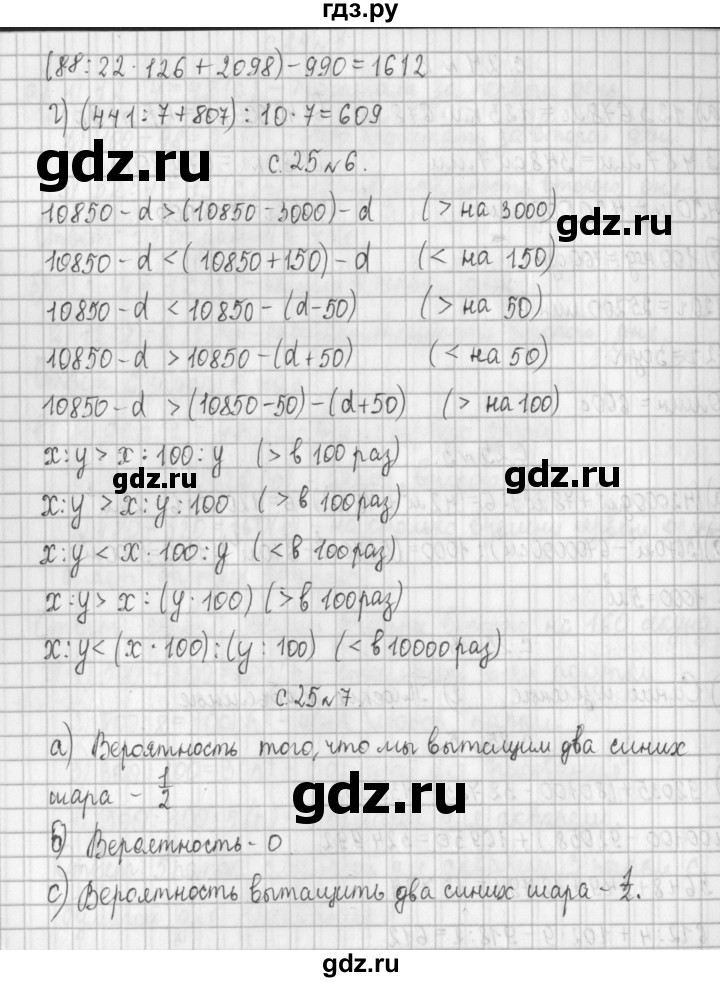 гдз.ру
(88:22·126+2098)-990=1612
г) (441:7+807):10·7=609
gdz.ru
с.25№6.
gdz.ru
10850-d>(10850-3000)-d (> на 3000)
10850-d<(10850+150)-d (< на 150)
10850-d<10850-(d-50) (> на 50)
10850-d>10850-(d+50) (< на 50)
10850-d>(10850-50)-(d+50) (> на 100)
x:y>x:100:y (> в 100 раз)
gdz.ru gdz.ru
x:y>x:y:100 (> в 100 раз)
x:y<x·100:y (< в 100 раз)
x:y>x:(y·100) (> в 100 раз)
x:y<(x·100):(y:100) (< в 10000 раз)
с.25№7.
а) Вероятность того, что мы вытащим два синих
шара - 1/2
gdz.ru
б) Вероятность - 0
с) Вероятность вытащить два синих шара - 1/2.
gdz.ru